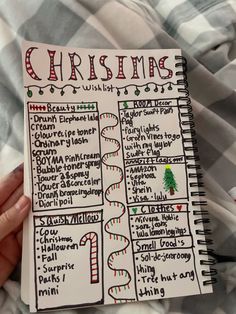 CHRISTMAS
Wishlist
Beauty
• Drunk Elephant lala
cream
• Glow recipe toner
• Ordinary lash
serum
• BOY MA Pink cream
• Bubble toner spray
• Tower 28 spray
• Tower 28 concealer
• Drunk bronzing drop
• Dior lip oil
Squish Mellows
• Cow
• Christmas
• Halloween
• Fall
• Surprise
Paks /
mini
ROOM Decor
• Taylor Swift Pain
flag
• Fairy lights
• Green vines to go
with my taylor
swift flag
• Amazon
• Sephora
• Ulta
• Visa
Clothes
• Nirvana
• Zara jeans
• Lulu lemon leggings
Smell Good's
• Sol-de-janeiro
thing
• Tree hut any
thing